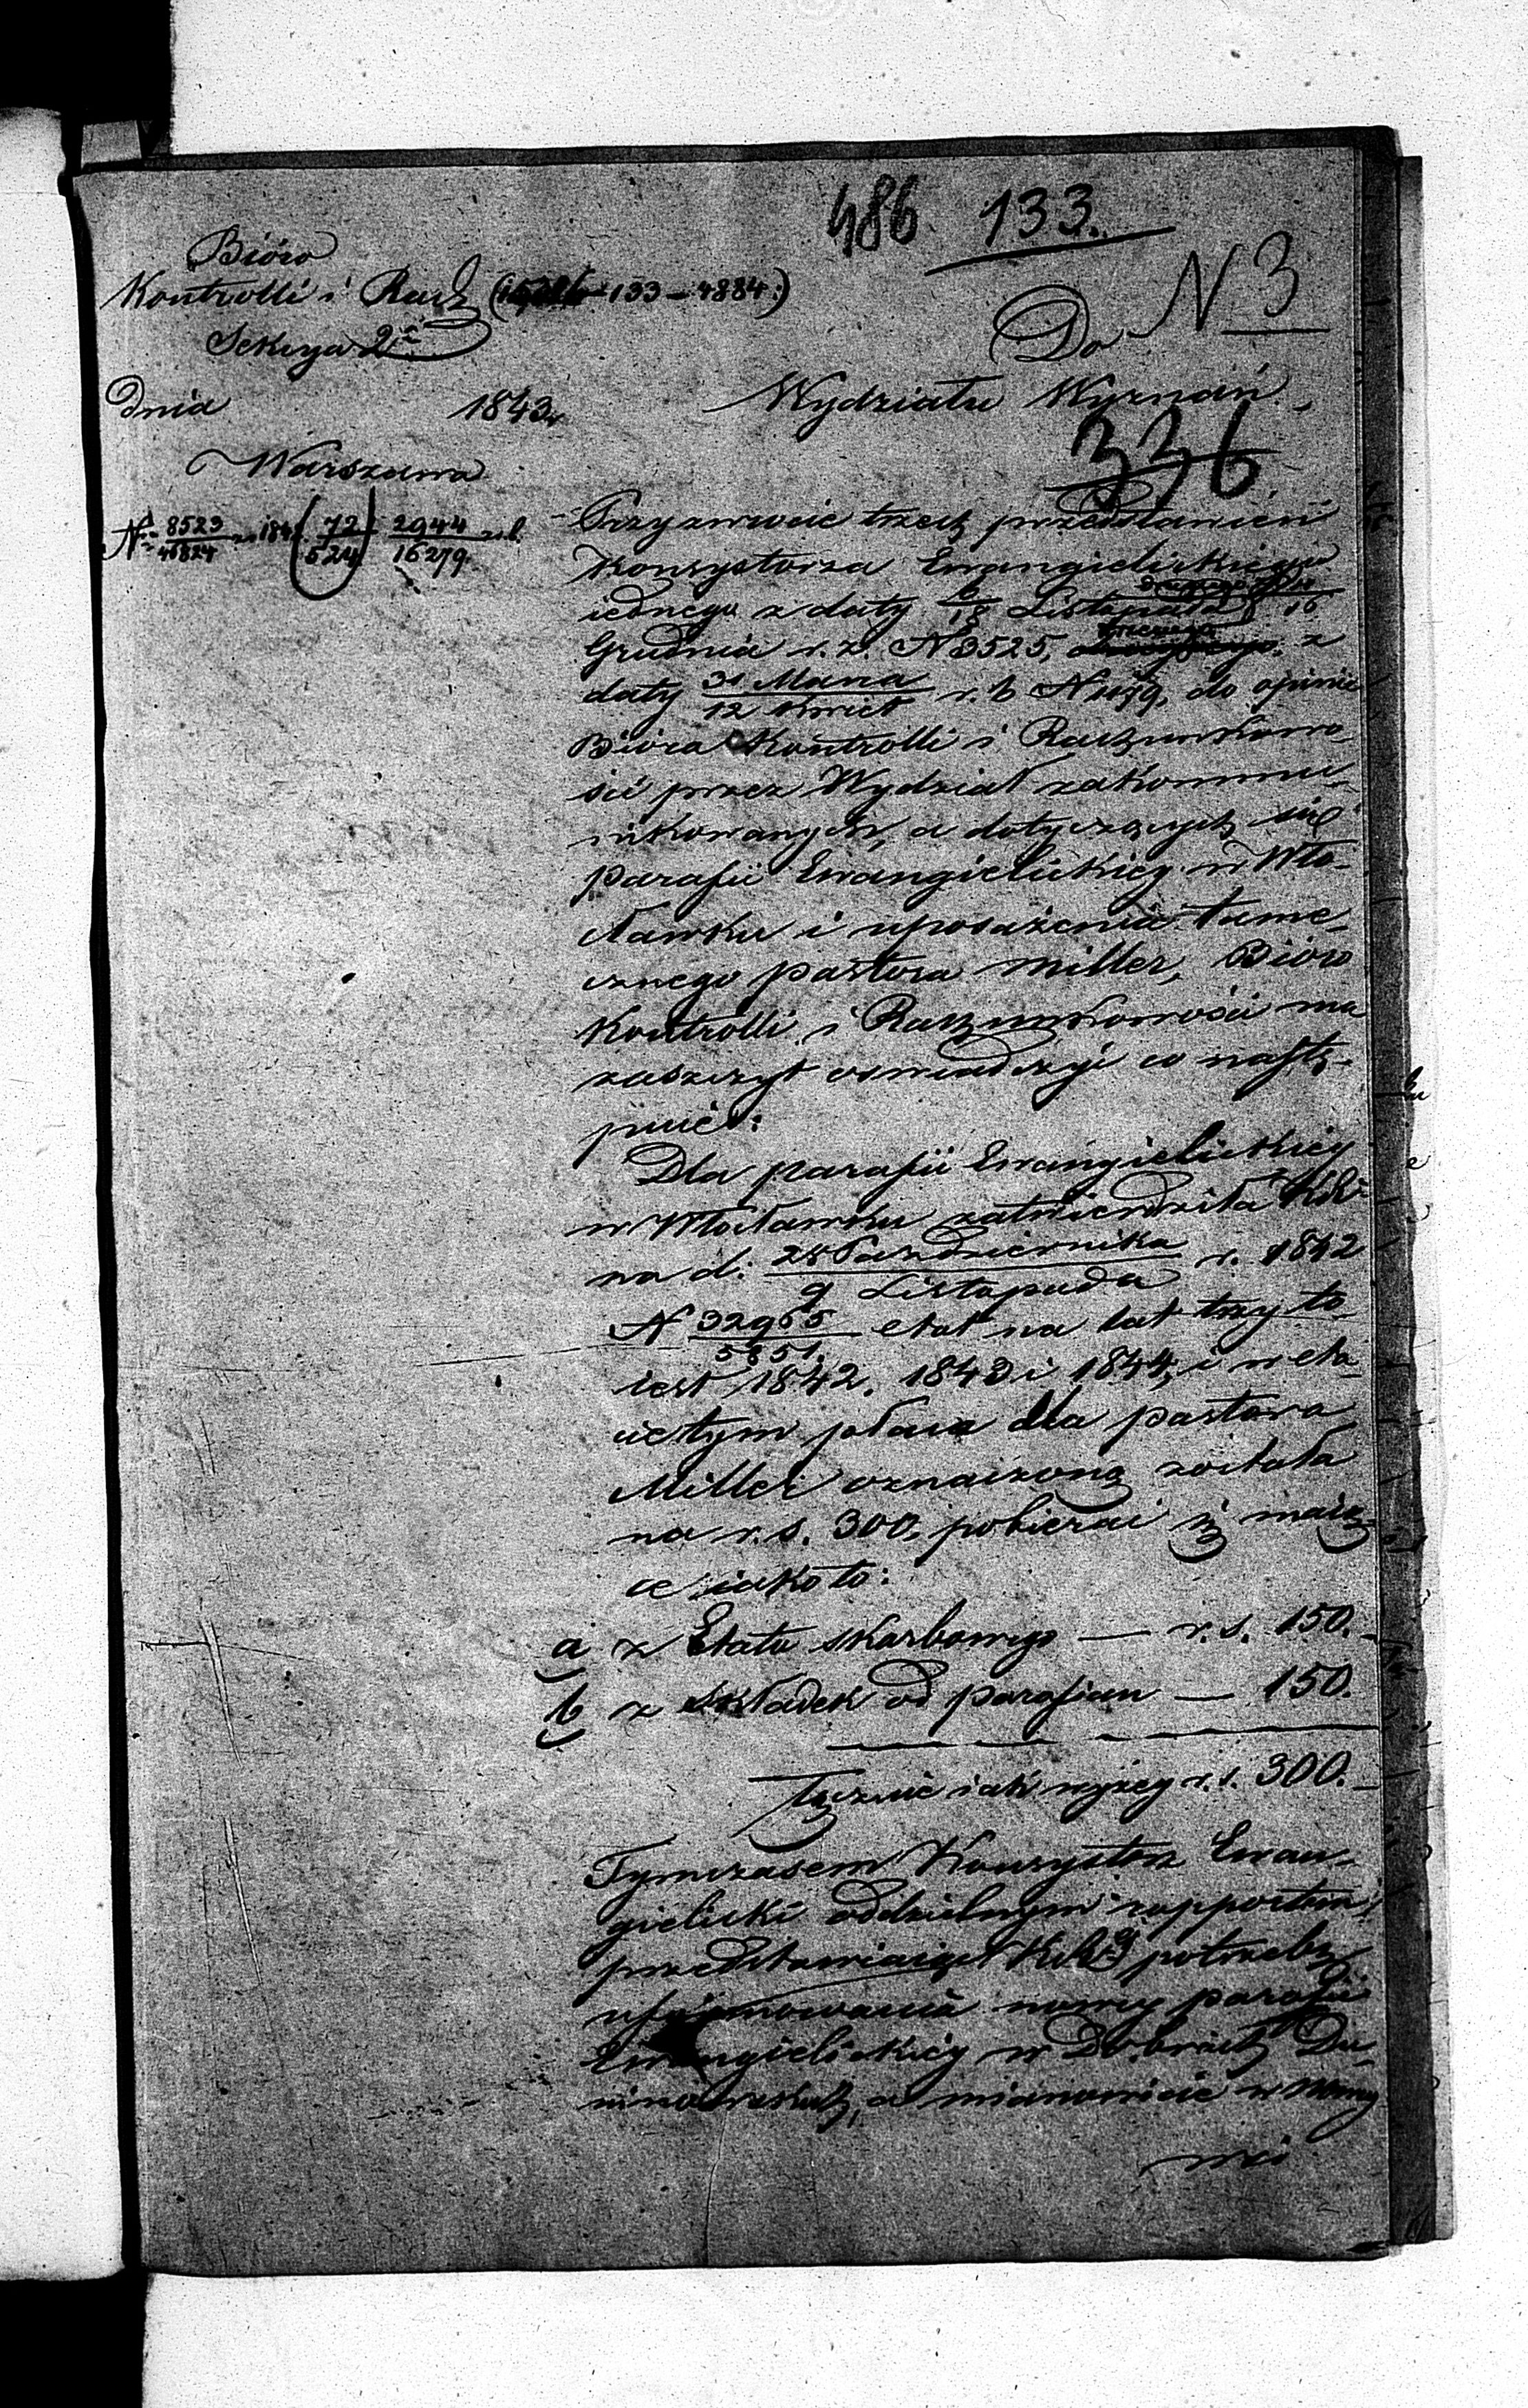 486 133.
Bióro
Kontrolli i Rach (133 – 4884:)
Sekcya 2a
N 3
Do
dnia 1843.
Wydziału Wyznań.
336
Warszawa
No 8523/46824 z 184 (72/524) 2944/16279 z. b.
Przy zwrocie trzech przedstawień
Konsystorza Ewangielickiego
iednego z daty 6/18 Listopada 16
Grudnia r. z. N 3525, trzeciego z
daty 31 Marca/12 Kwiet r. b N 1179, do opinii
Bióra Kontrolli i Rachunkowo-
ści przez Wydział zakommu-
nikowanych, a dotyczących się
parafii Ewangielickiey w Wło-
cławku i uposażenia tame-
cznego pastora Miller, Bióro
Kontrolli i Rachunkowości ma
zaszczyt oswiadczyć co nastę-
puie:
Dla parafii Ewangielickiey
w Włocławku zatwierdziła KRz
na d: 28 Pazdziernika/9 Listopada r. 1842
N 32965/5851 etat na lat trzy to
iest 1842. 1843 i 1844, i w eta-
cie tym płaca dla pastora
Miller oznaczoną została
na r. s. 300, pobierać ią maią-
ce iako to:
a z Etatu skarbowego — r. s. 150.
b z składek od parafian — 150.
łącznie iak wyżey r. s. 300.
Tymczasem Konsystorz Ewan-
gielicki oddzielnym rapportem
przedstawiaiąc potrzebę
uformowania nowey parafii
Ewangielickiey w Dobrach Du-
ninowskich, a mianowicie w Nowy